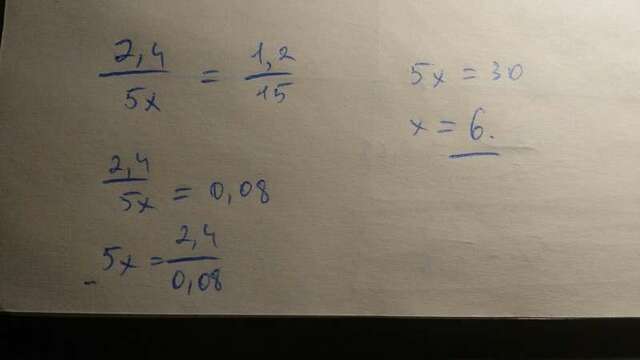 2,4/5x = 1,2/15
2,4/5x = 0,08
5x = 2,4/0,08
5x = 30
x = 6.